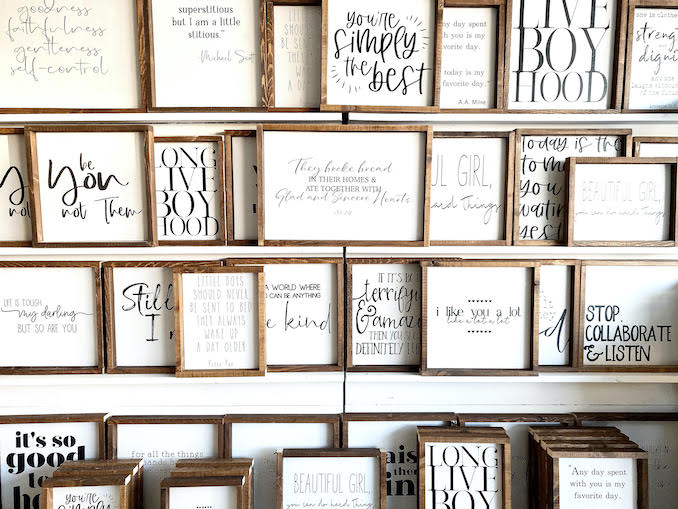 goodness
faithfulness
gentleness
self-control
superstitious
but I am a little
stitious."
Michael Scott
LITTLE
SHOULD
BE SEN
THEY
WAKE
A DAY
you're
simply
the
best
day spent
with you is my
favorite day.
today is my
favorite day."
A.A. Milne
LIVE
BOY
HOOD
she is clothed
strength
and
dignity
be
you
not Them
LONG
LIVE
BOY
HOOD
They broke bread
IN THEIR HOMES &
ATE TOGETHER WITH
Glad and Sincere Hearts
UL GIRL,
hard Things
Today is the
to me
you
waitin
yes
BEAUTIFUL GIRL,
you can do hard Things
LIFE IS TOUGH
my darling
BUT SO ARE YOU
Still
I
LITTLE BOYS
SHOULD NEVER
BE SENT TO BED
THEY ALWAYS
WAKE UP
A DAY OLDER
Peter Pan
A WORLD WHERE
CAN BE ANYTHING
be kind
IF IT'S B
terrify
& amaz
THEN YOU S
DEFINITELY
i like you a lot
like a lot a lot
d
STOP.
COLLABORATE
& LISTEN
it's so
good
to
for all the things
you're
simply
BEAUTIFUL GIRL,
you can do hard Things
LONG
LIVE
BOY
"Any day spent
with you is my
favorite day."